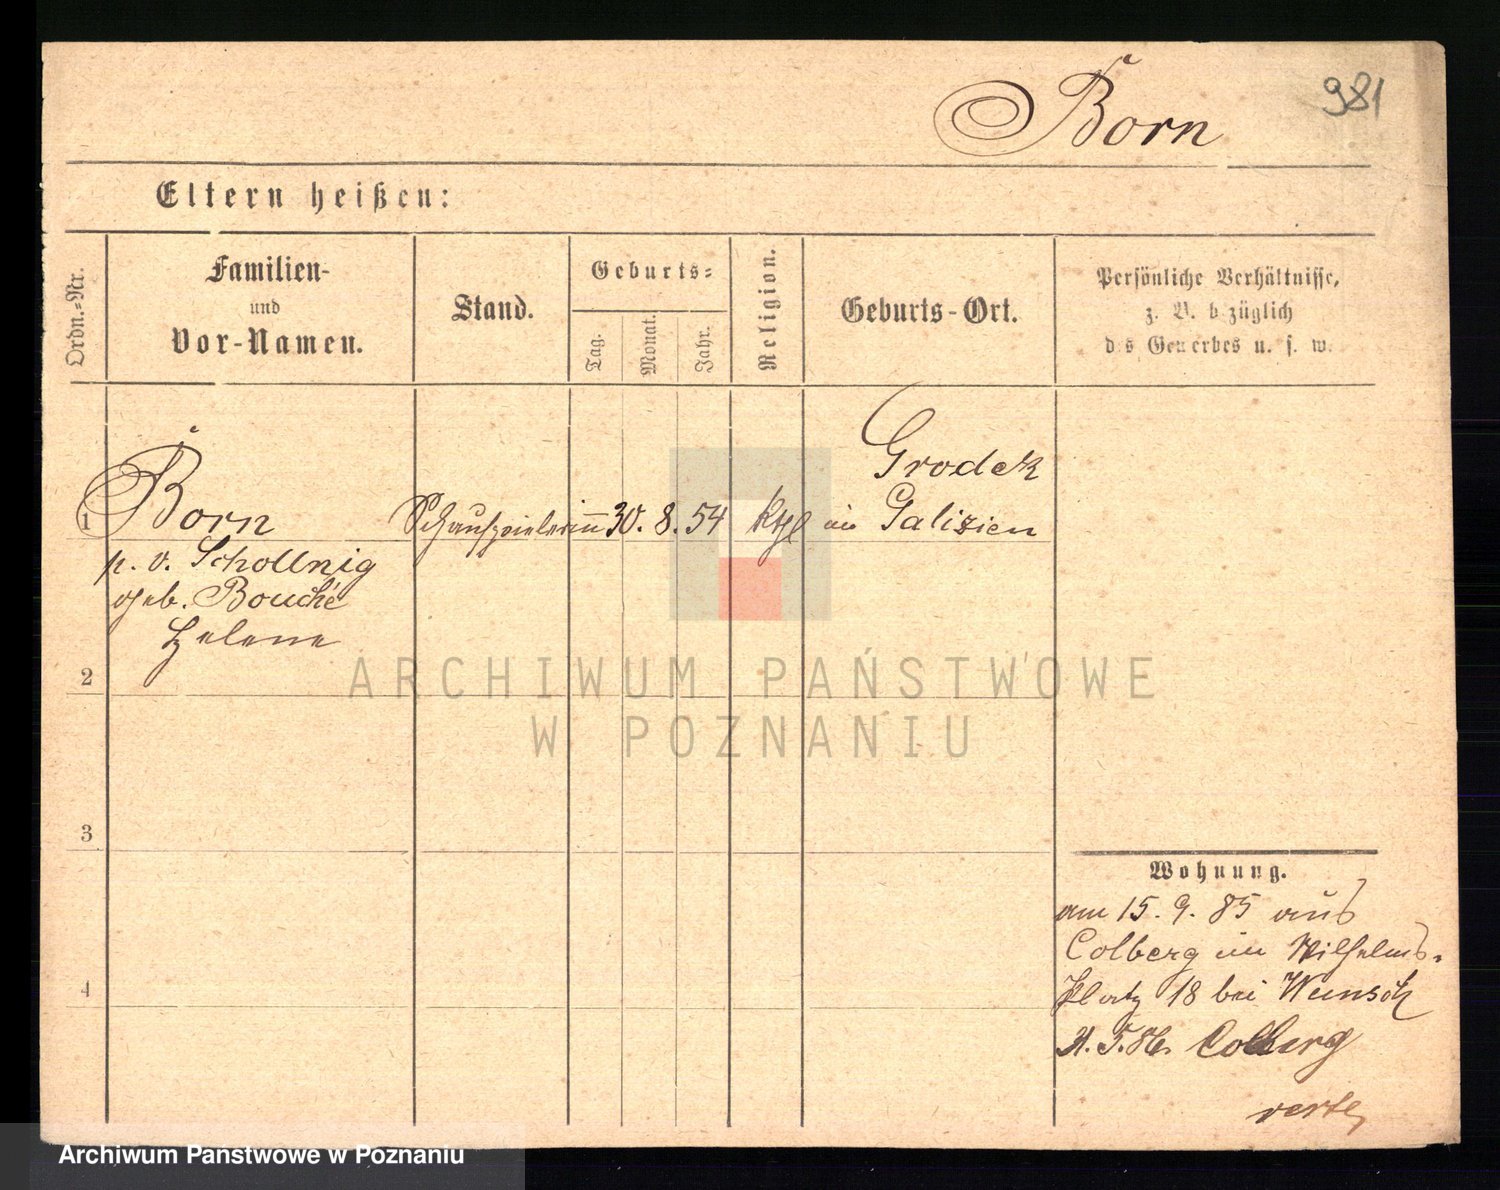 981
Born
Eltern heißen:
Ordn.-Nr.
Familien-
und
Vor-Namen.
Stand.
Geburts-
Tag.
Monat.
Jahr.
Religion.
Geburts-Ort.
Persönliche Verhältnisse,
z. B. bezüglich
des Gewerbes u. s. w.
1 Born Schauspielerin 30. 8. 54 kthl
Grodek
in Galizien
p. v. Schollnig
geb. Bouché
Helene
2
3
4
Wohnung.
am 15. 9. 85 aus
Colberg im Wilhelms-
Platz 18 bei Wunsch
5. 86. Colberg
verte
ARCHIWUM PAŃSTWOWE
W POZNANIU
Archiwum Państwowe w Poznaniu